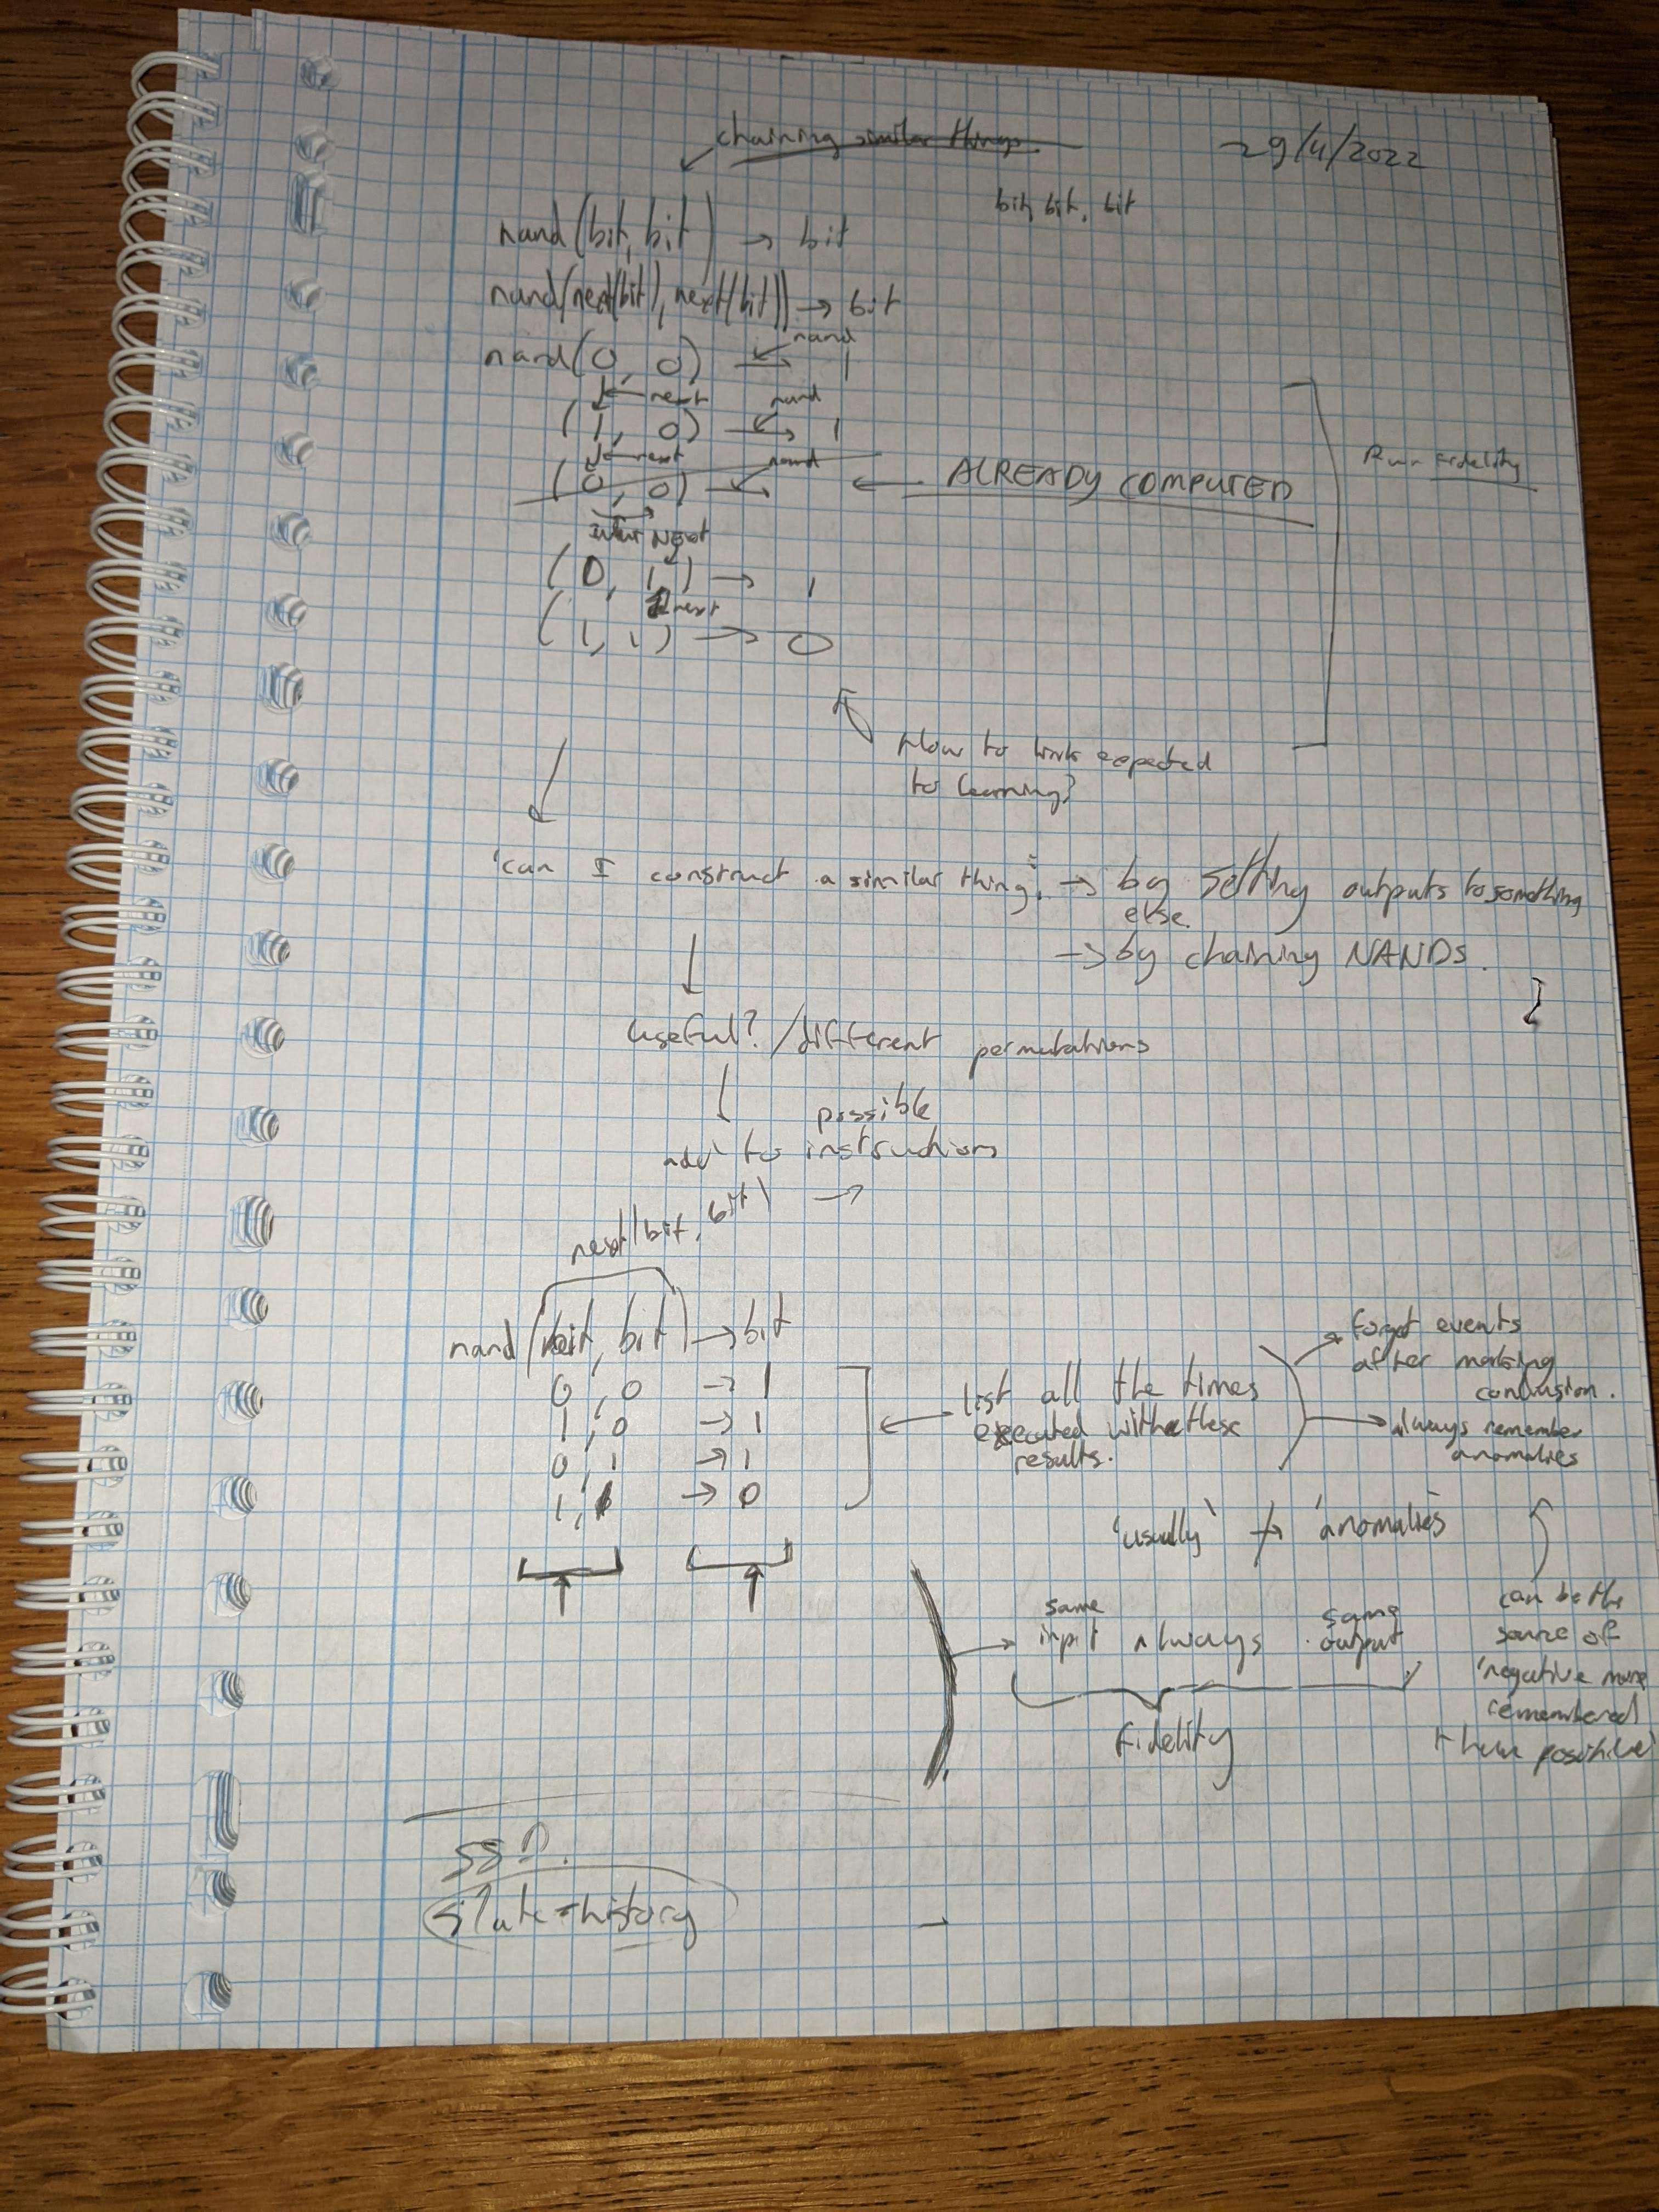 chaining similar things
29/4/2022
bit, bit, bit
nand(bit, bit) → bit
nand(next(bit), next(bit)) → bit
nand
nand(0, 0) → 1
← next nand
(1, 0) → 1
← next nand
(0, 0) → ← ALREADY COMPUTED
fidelity
NEXT
(0, 1) → 1
next
(1, 1) → 0
How to expected
to learning?
'can I construct a similar thing' → by setting outputs to something
else.
→ by chaining NANDS.
useful? / different permutations
possible
add to instructions
next(bit, bit) →
nand(bit, bit) → bit
0, 0 → 1
1, 0 → 1
0, 1 → 1
1, 1 → 0
← list all the times
executed with these
results.
→ forget events
after making
conclusion.
→ always remember
anomalies
'usually' → 'anomalies'
can be the
source of
'negative more
remembered
than positive'
→ same input always same output
fidelity
SSD.
state = history
→